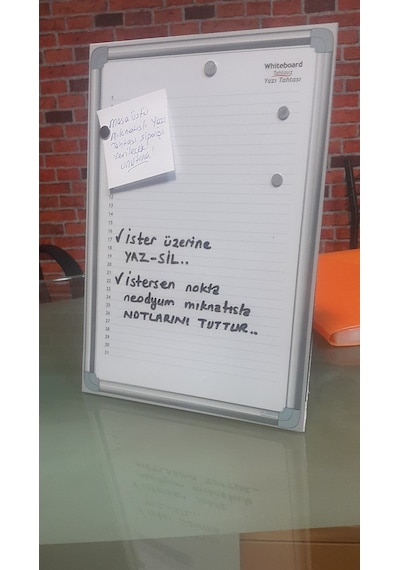 Whiteboard
Yazı Tahtası
masa üstü
mıknatıslı yazı
tahtası siparişi
verilecek
unutma
✓ ister üzerine
YAZ-SİL..
✓ istersen nokta
neodyum mıknatısla
NOTLARINI TUTTUR..
17
18
19
20
21
22
23
24
25
26
27
28
29
30
31